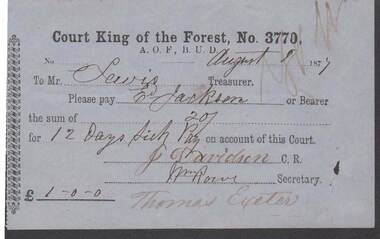 Court King of the Forest, No. 3770,
A. O. F., B. U. D.
No August 9 1877
To Mr. Lewis Treasurer.
Please pay E Jackson or Bearer
the sum of 20/
for 12 Days Sick Pay on account of this Court.
J Davidson C. R.
Wm Rowe Secretary.
£ 1-0-0
Thomas Exeter